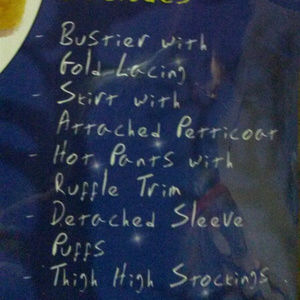 - Bustier with
Gold Lacing
- Skirt with
Attached Petticoat
- Hot Pants with
Ruffle Trim
- Detached Sleeve
Puffs
- Thigh High Stockings